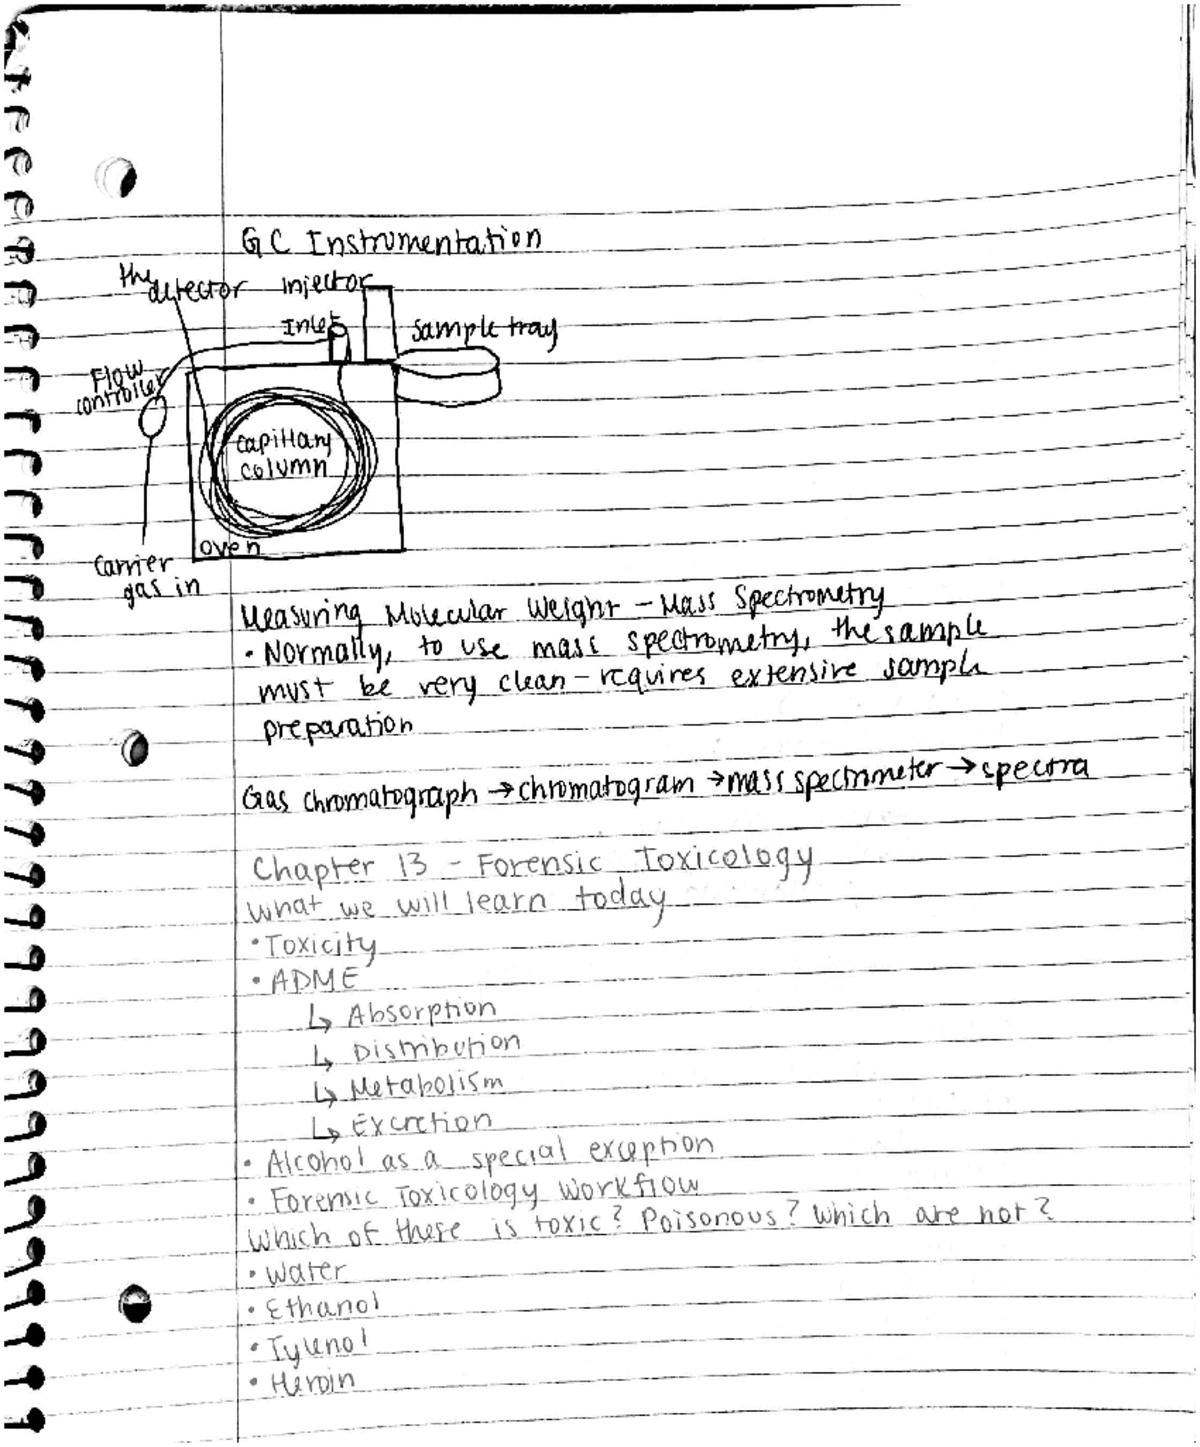 GC Instrumentation
the detector
injector
Inlet
sample tray
Flow controller
capillary
column
oven
carrier
gas in
Measuring Molecular Weight - Mass Spectrometry
• Normally, to use mass spectrometry, the sample
must be very clean - requires extensive sample
preparation
Gas chromatograph → chromatogram → mass spectrometer → spectra
Chapter 13 - Forensic Toxicology
What we will learn today
• Toxicity
• ADME
↳ Absorption
↳ Distribution
↳ Metabolism
↳ Excretion
• Alcohol as a special exception
• Forensic Toxicology Workflow
Which of these is toxic? Poisonous? Which are not?
• Water
• Ethanol
• Tylenol
• Heroin